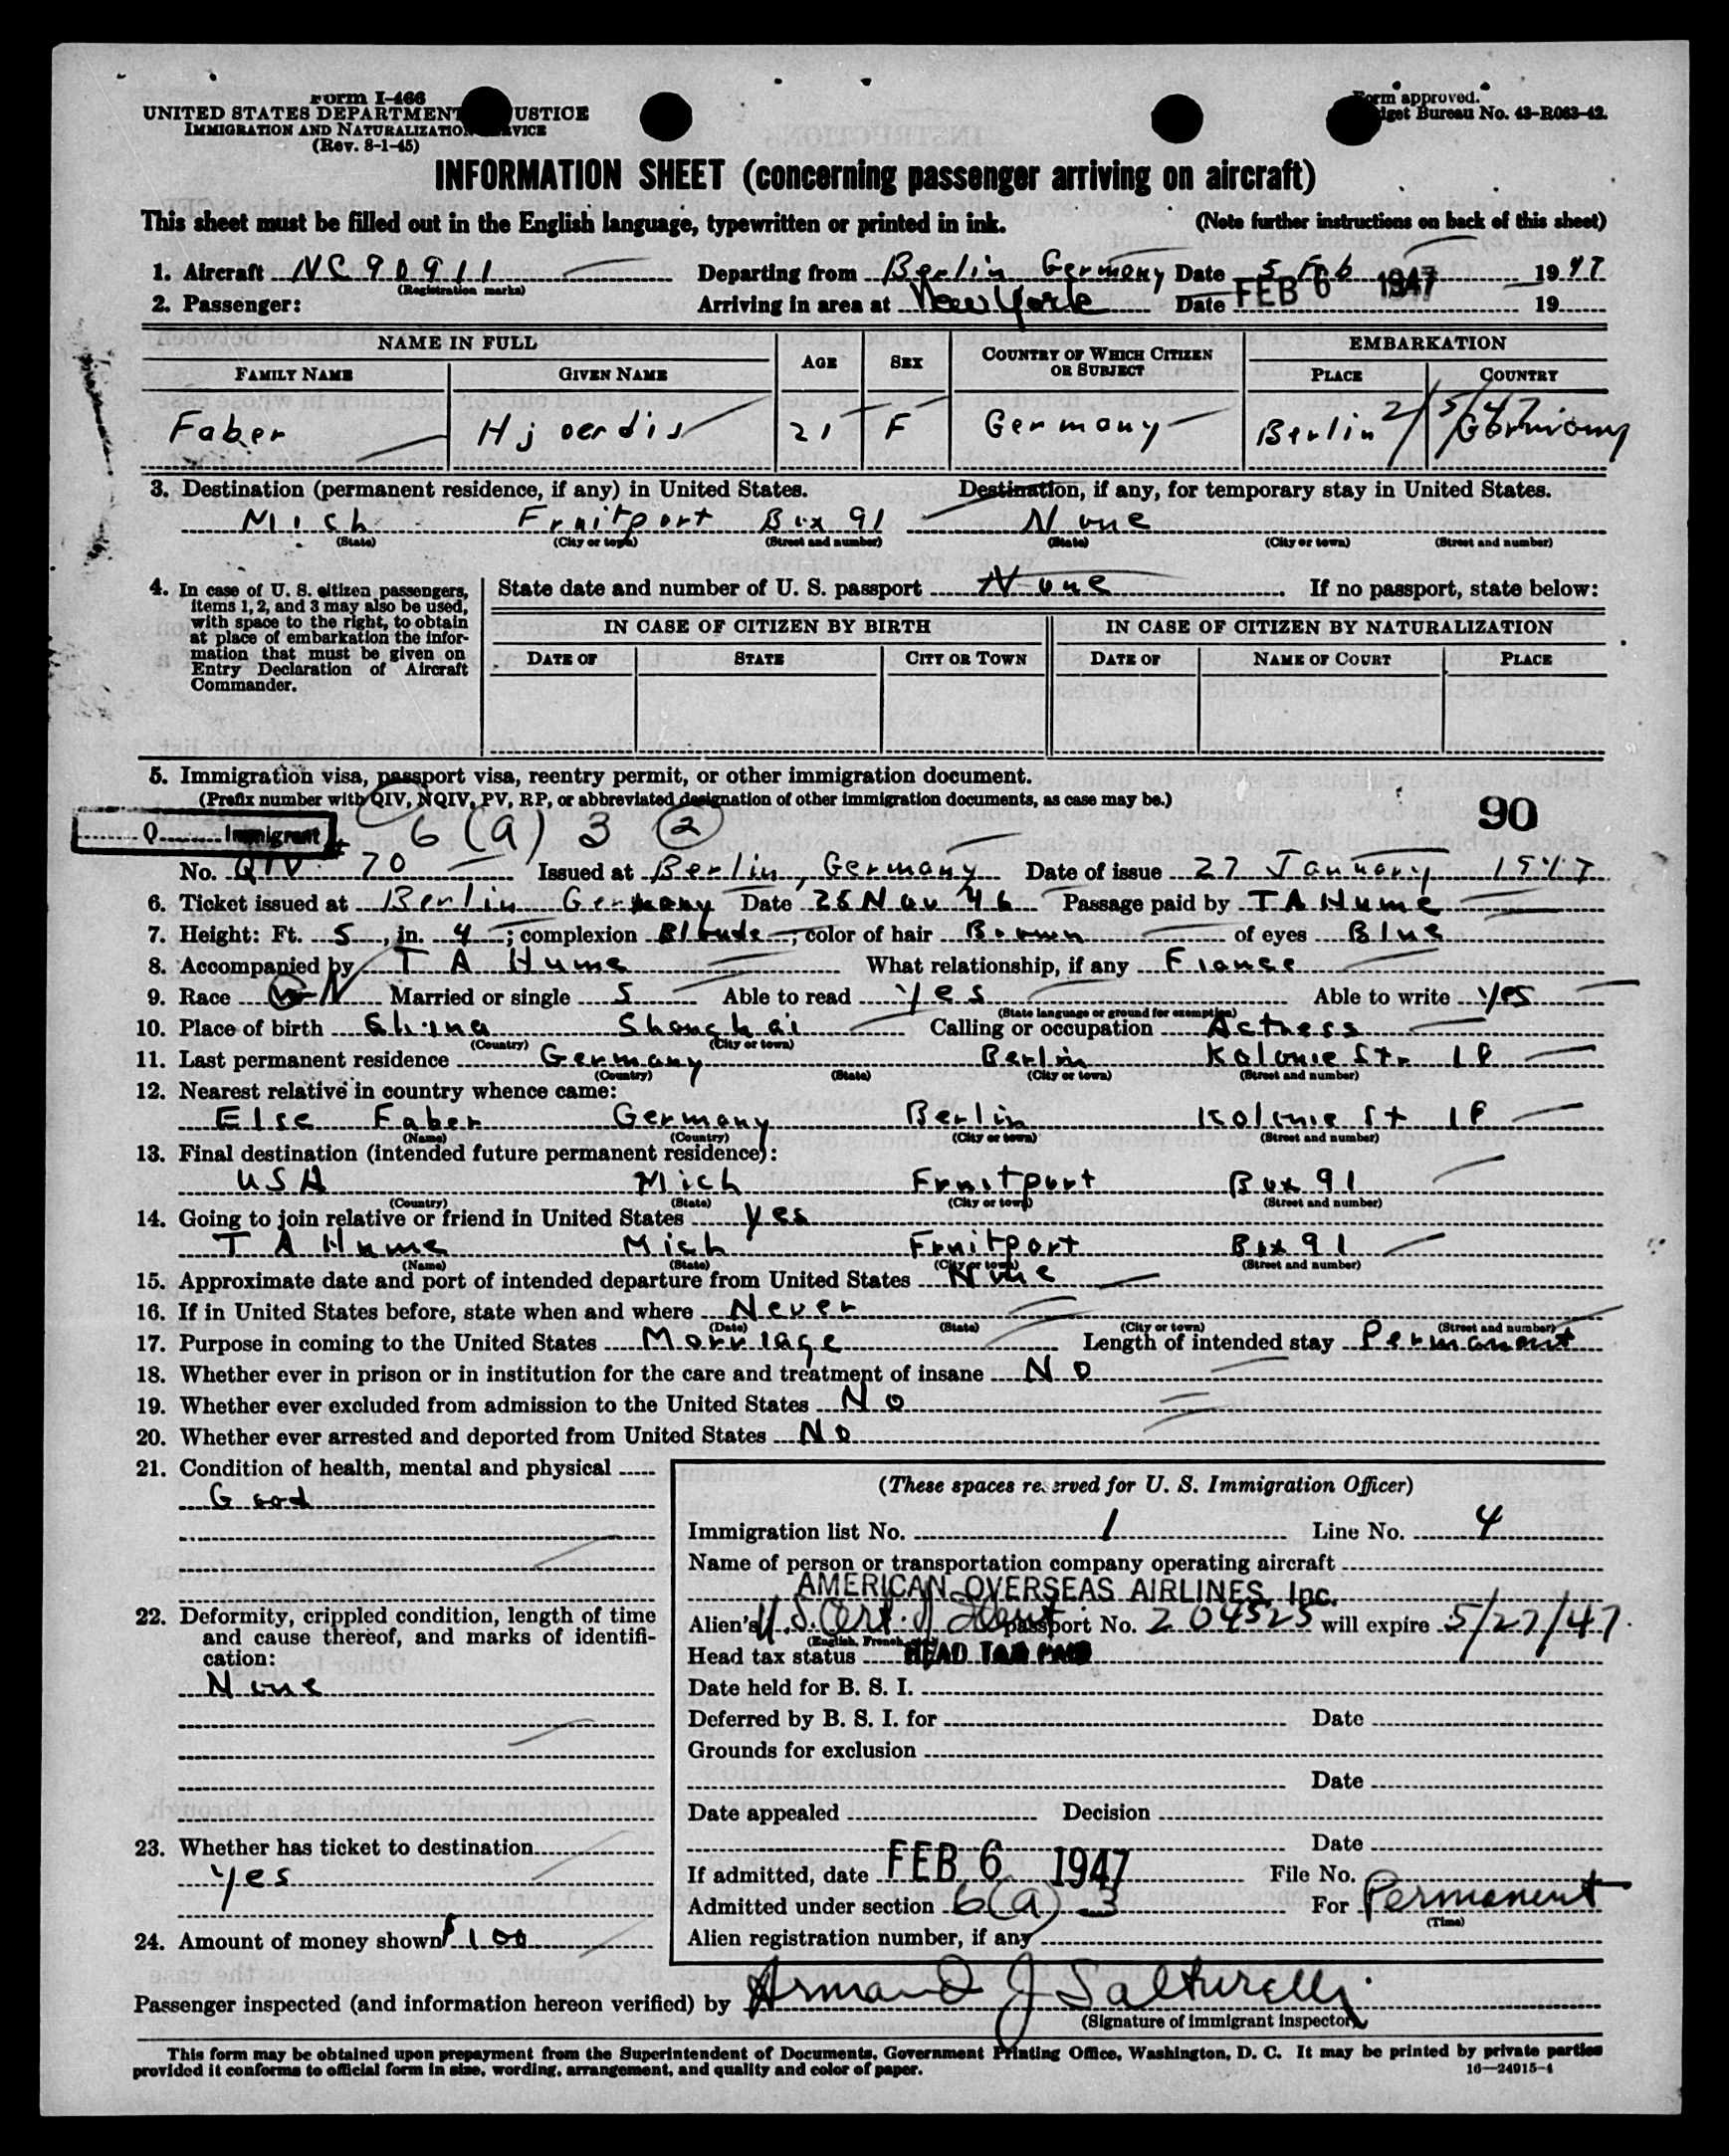 Form I-466
UNITED STATES DEPARTMENT USTICE
IMMIGRATION AND NATURALIZATION SERVICE
(Rev. 8-1-45)
Form approved.
Budget Bureau No. 43-R063-42.
INFORMATION SHEET (concerning passenger arriving on aircraft)
This sheet must be filled out in the English language, typewritten or printed in ink. (Note further instructions on back of this sheet)
1. Aircraft NC90911 Departing from Berlin Germany Date 5 Feb 1947
(Registration marks)
2. Passenger: Arriving in area at New York Date FEB 6 1947 19
NAME IN FULL AGE SEX COUNTRY OF WHICH CITIZEN OR SUBJECT EMBARKATION
FAMILY NAME GIVEN NAME PLACE COUNTRY
Faber Hjoerdis 21 F Germany Berlin 2/5/47 Germany
3. Destination (permanent residence, if any) in United States. Destination, if any, for temporary stay in United States.
Mich Fruitport Box 91 None
(State) (City or town) (Street and number) (State) (City or town) (Street and number)
4. In case of U. S. citizen passengers, items 1, 2, and 3 may also be used, with space to the right, to obtain at place of embarkation the information that must be given on Entry Declaration of Aircraft Commander.
State date and number of U. S. passport None If no passport, state below:
IN CASE OF CITIZEN BY BIRTH IN CASE OF CITIZEN BY NATURALIZATION
DATE OF STATE CITY OR TOWN DATE OF NAME OF COURT PLACE
5. Immigration visa, passport visa, reentry permit, or other immigration document.
(Prefix number with QIV, NQIV, PV, RP, or abbreviated designation of other immigration documents, as case may be.)
90
Q Immigrant 6(a) 3 2
No. QIV 70 Issued at Berlin, Germany Date of issue 27 January 1947
6. Ticket issued at Berlin Germany Date 26 Nov 46 Passage paid by T A Hume
7. Height: Ft. 5, in. 4; complexion Blonde; color of hair Brown of eyes Blue
8. Accompanied by T A Hume What relationship, if any Fiance
9. Race Married or single S Able to read Yes Able to write Yes
(State language or ground for exemption)
10. Place of birth China Shanghai Calling or occupation Actress
(Country) (City or town)
11. Last permanent residence Germany Berlin Kolonie Str 18
(Country) (State) (City or town) (Street and number)
12. Nearest relative in country whence came:
Else Faber Germany Berlin Kolonie St 18
(Name) (Country) (City or town) (Street and number)
13. Final destination (intended future permanent residence):
USA Mich Fruitport Box 91
(Country) (State) (City or town) (Street and number)
14. Going to join relative or friend in United States Yes
T A Hume Mich Fruitport Box 91
(Name) (State) (City or town) (Street and number)
15. Approximate date and port of intended departure from United States None
16. If in United States before, state when and where Never
(Date) (State) (City or town) (Street and number)
17. Purpose in coming to the United States Marriage Length of intended stay Permanent
18. Whether ever in prison or in institution for the care and treatment of insane No
19. Whether ever excluded from admission to the United States No
20. Whether ever arrested and deported from United States No
21. Condition of health, mental and physical
Good
22. Deformity, crippled condition, length of time and cause thereof, and marks of identification:
None
23. Whether has ticket to destination
Yes
24. Amount of money shown $100
(These spaces reserved for U. S. Immigration Officer)
Immigration list No. 1 Line No. 4
Name of person or transportation company operating aircraft
AMERICAN OVERSEAS AIRLINES, Inc.
Alien's U.S. Cert. of Ident passport No. 204525 will expire 5/27/47.
(English, French
Head tax status HEAD TAX PAID
Date held for B. S. I.
Deferred by B. S. I. for Date
Grounds for exclusion
Date
Date appealed Decision
Date
If admitted, date FEB 6 1947 File No.
Admitted under section 6(a) 3 For Permanent
(Time)
Alien registration number, if any
Passenger inspected (and information hereon verified) by Armand J Salturelli
(Signature of immigrant inspector)
This form may be obtained upon prepayment from the Superintendent of Documents, Government Printing Office, Washington, D. C. It may be printed by private parties
provided it conforms to official form in size, wording, arrangement, and quality and color of paper. 16—24915-1